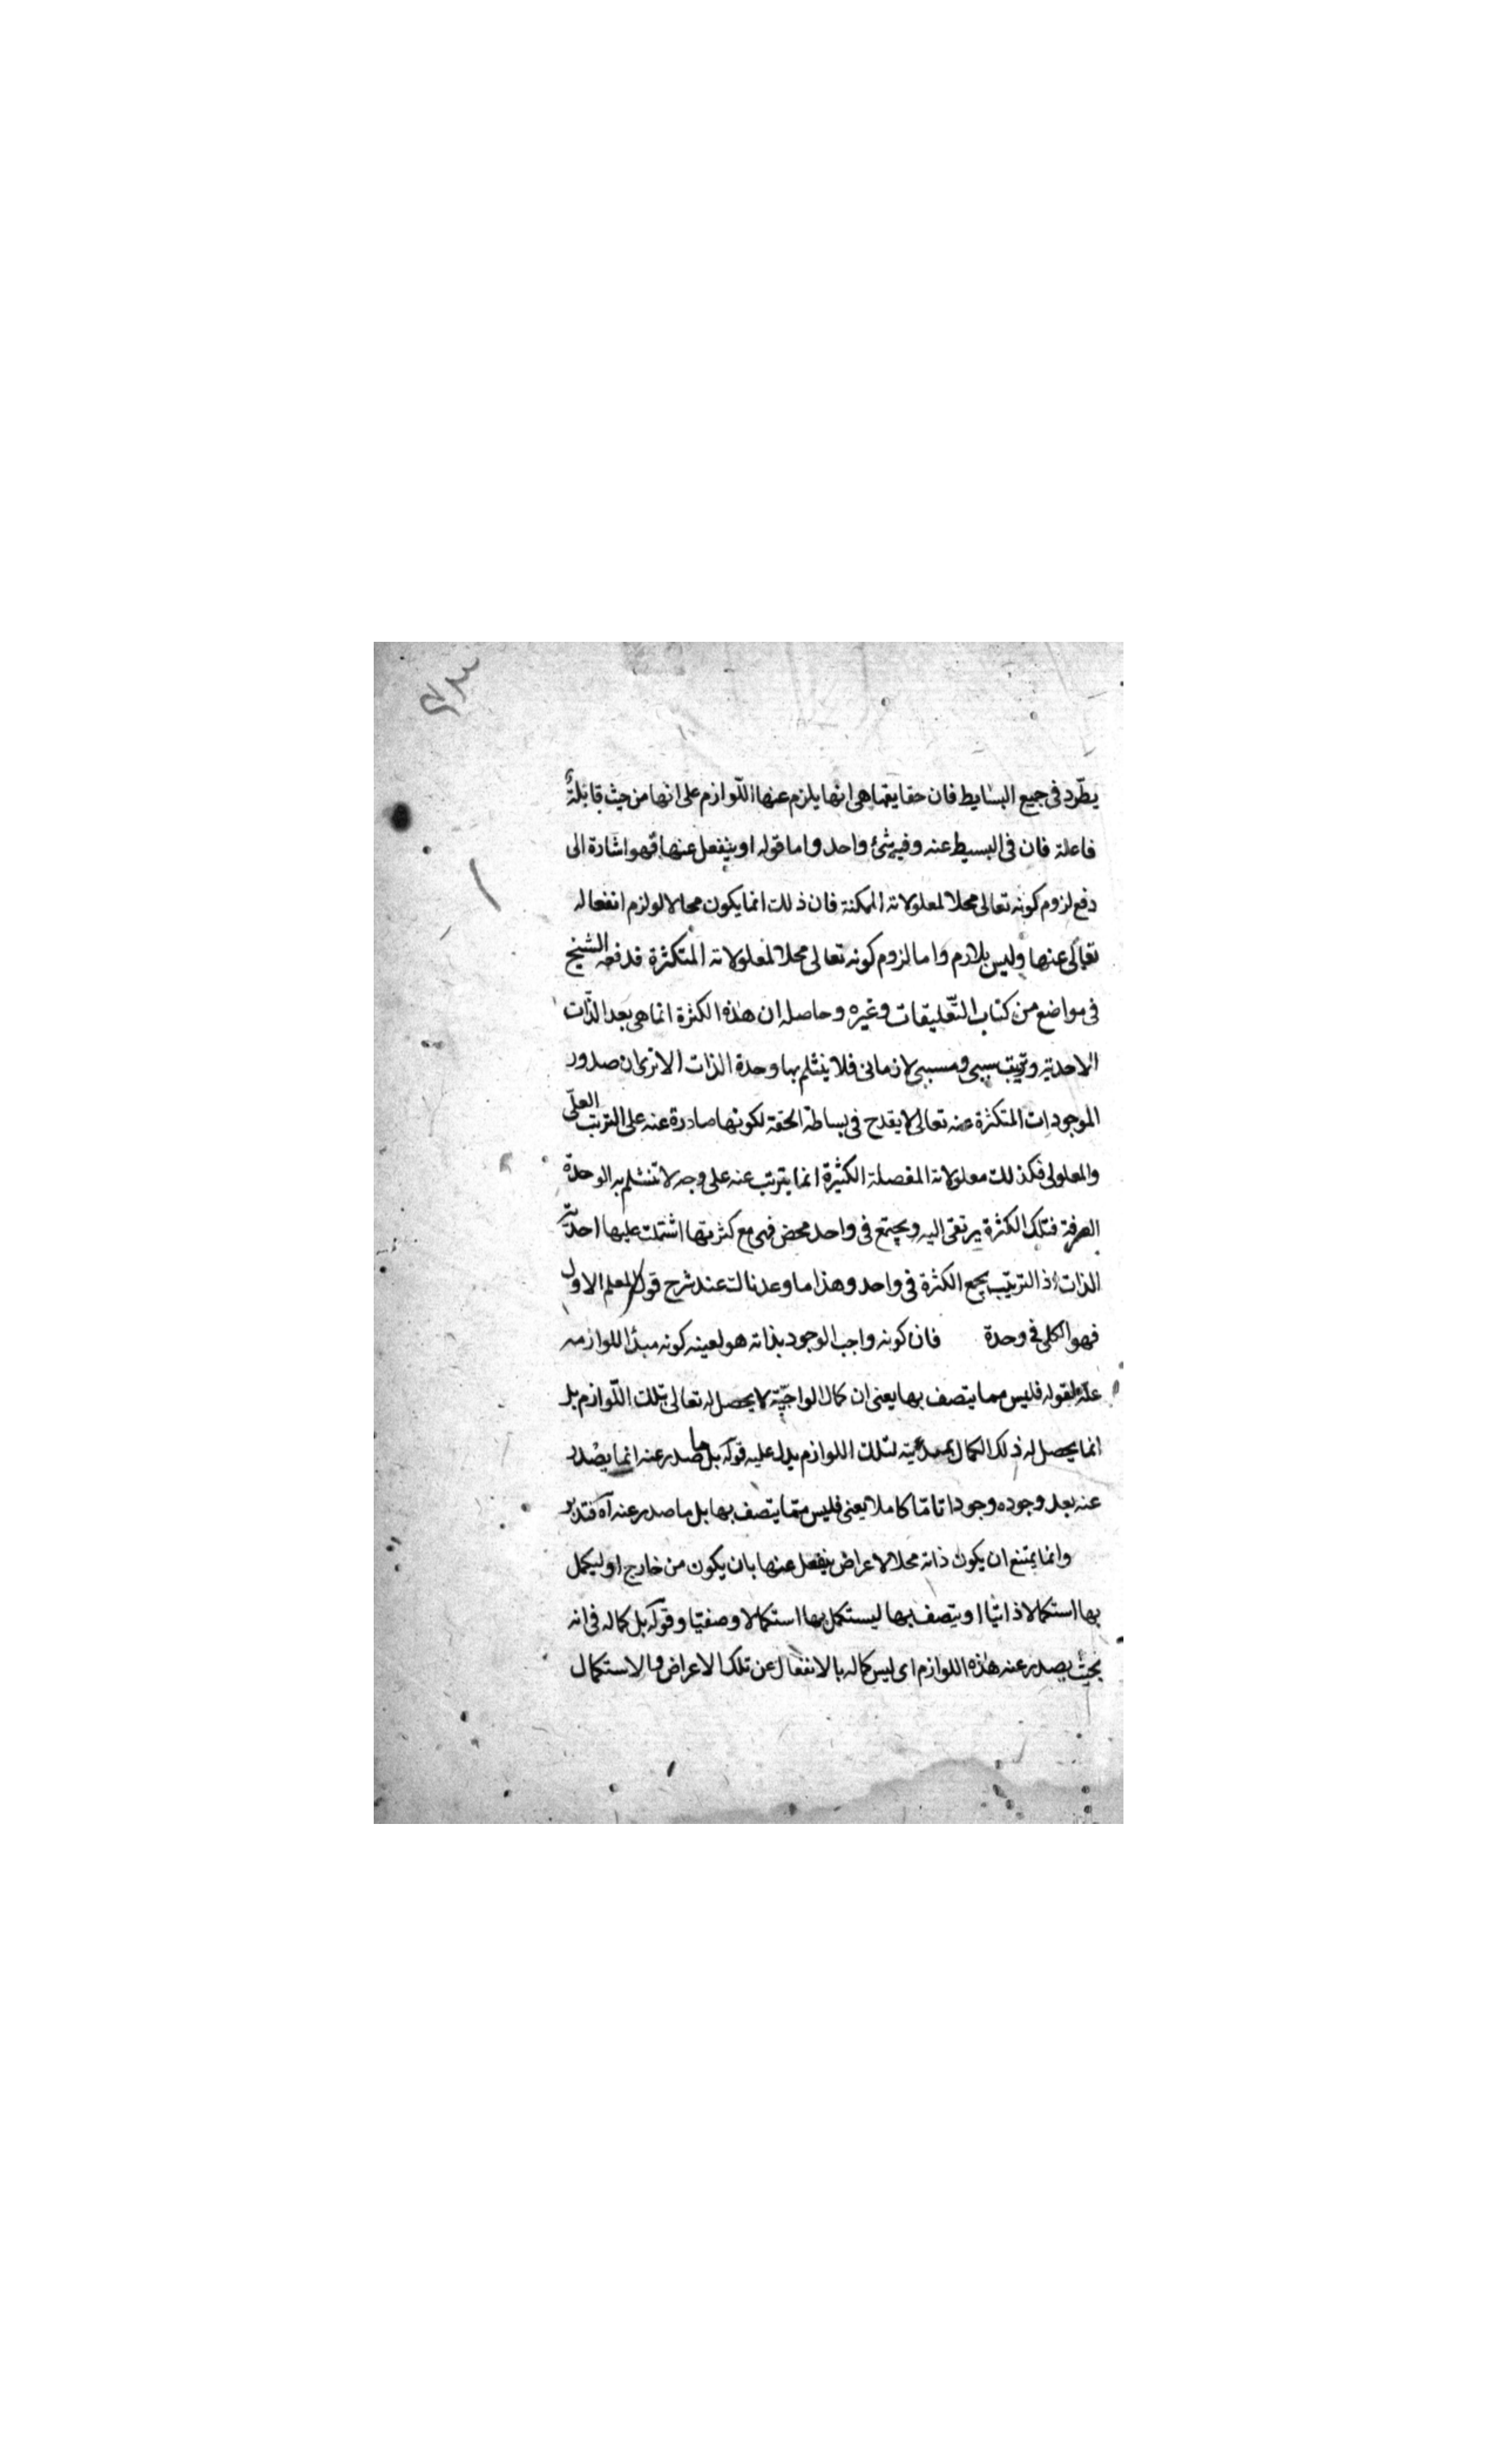 يطّرد فى جميع البسايط فان حقايقها هى انها يلزم عنها اللّوازم على انها من حيث قابلة
فاعلة فان فى البسيط عنه وفيه شئ واحد واما قوله او ينفعل عنها فهو اشارة الى
دفع لزوم كونه تعالى محلا لمعلولاته الممكنة فان ذلك انما يكون محالا لو لزم انفعاله
تعالى عنها وليس بلازم واما لزوم كونه تعالى محلا لمعلولاته المتكثرة فدفعه الشيخ
فى مواضع من كتاب التّعليقات وغيره وحاصله ان هذه الكثرة انما هى بعد الذّات
الاحدية وترتيب سببى ومسببى لا زمانى فلا ينثلم بها وحدة الذات الا ترى ان صدور
الموجودات المتكثرة عنه تعالى لا يقدح فى بساطة الحقة لكونها صادرة عنه على الترتيب العلّى
والمعلولى فكذلك معلولاته المفصلة الكثيرة انما يترتب عنه على وجه لا تنثلم به الوحدة
الصرفة فتلك الكثرة يرتقى اليه ويجتمع فى واحد محض فهى مع كثرتها اشتملت عليها احديّة
الذات اذ الترتيب يجمع الكثرة فى واحد وهذا ما وعدنا لك عند شرح قول المعلم الاول
فهو الكل فى وحدة فان كونه واجب الوجود بذاته هو لعينه كونه مبدأ اللوازمه
علّة لقوله فليس مما يتصف بها يعنى ان كمال الواجبيّة لا يحصل له تعالى بتلك اللّوازم بل
انما يحصل له ذلك الكمال بمبدئية لتلك اللوازم يدل عليه قوله بل ما صدر عنه انما يصدر
عنه بعد وجوده وجودا تامّا كاملا يعنى فليس ممّا يتصف بها بل ما صدر عنه آه فتدبر
وانما يمتنع ان يكون ذاته محلا لاعراض ينفعل عنها بان يكون من خارج او ليكمل
بها استكمالا ذاتيّا او يتصف بها ليستكمل بها استكمالا وصفيّا وقوله بل كماله فى انه
بحيث يصدر عنه هذه اللوازم اى ليس كماله بالانفعال عن تلك الاعراض والاستكمال